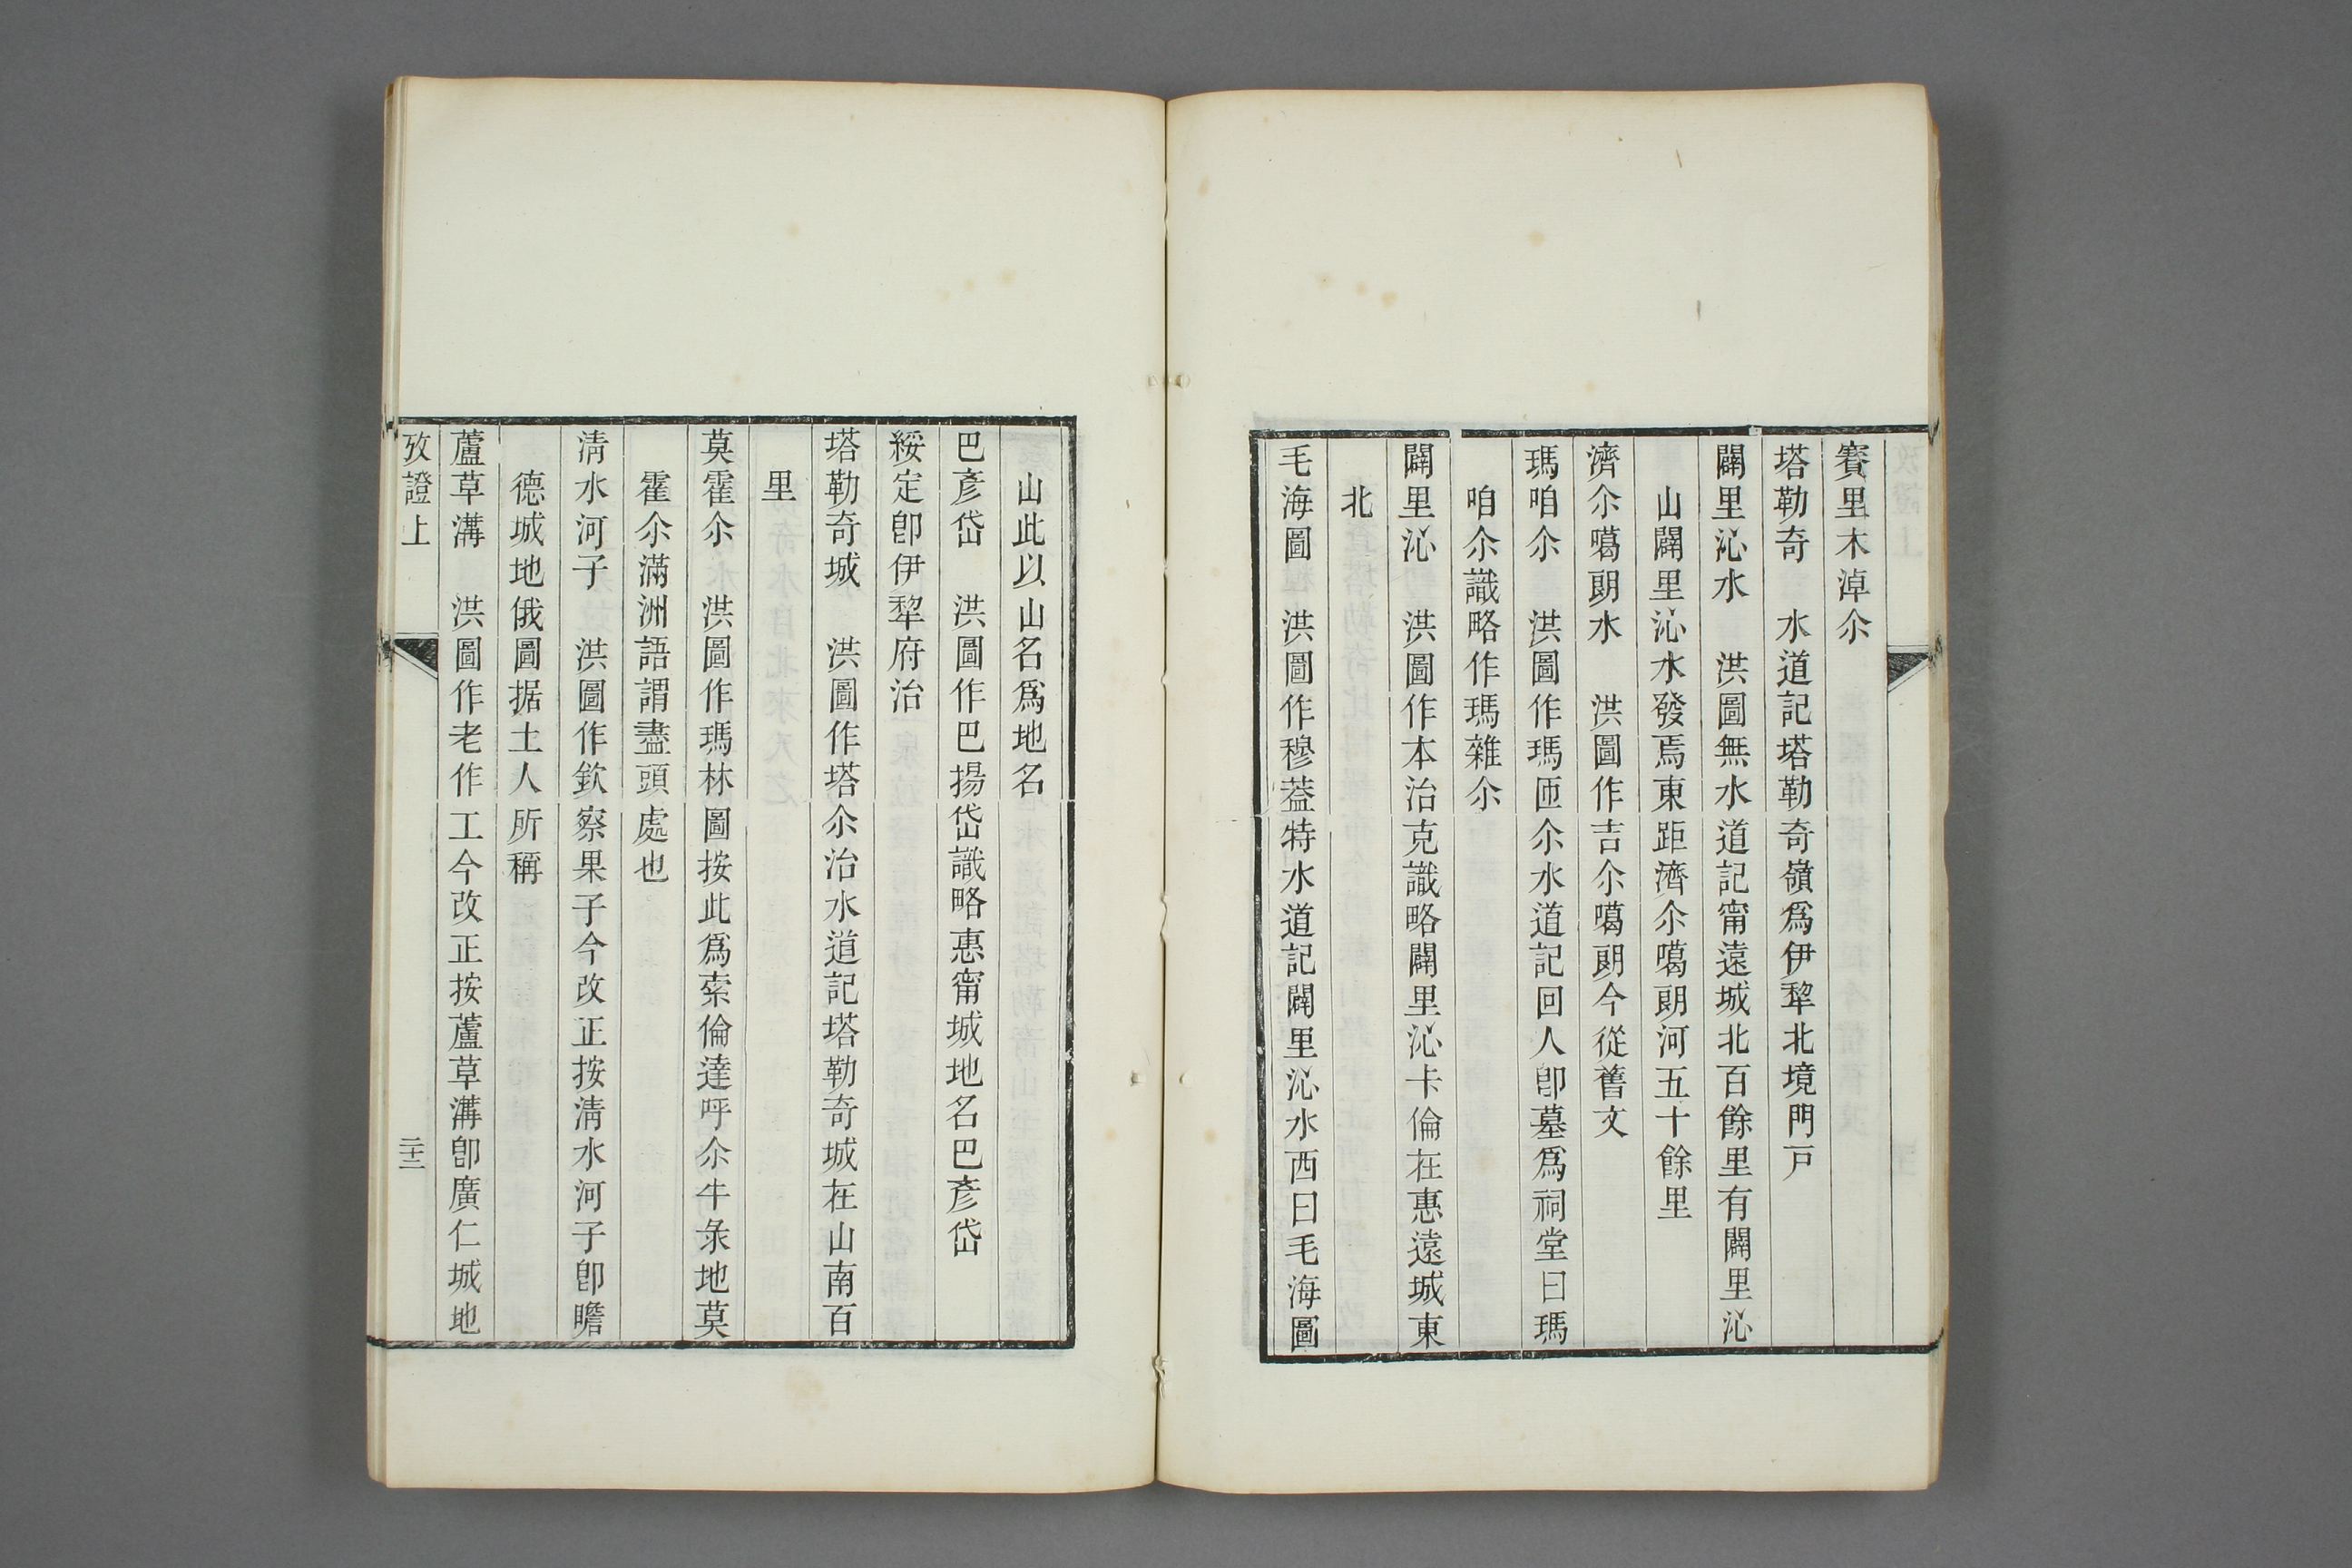 賽里木淖尒
塔勒奇　水道記塔勒奇嶺爲伊犂北境門戸
闢里沁水　洪圖無水道記甯遠城北百餘里有闢里沁
山闢里沁水發焉東距濟尒噶朗河五十餘里
濟尒噶朗水　洪圖作吉尒噶朗今從舊文
瑪咱尒　洪圖作瑪匝尒水道記回人卽墓爲祠堂曰瑪
咱尒識略作瑪雜尒
闢里沁　洪圖作本治克識略闢里沁卡倫在惠遠城東
北
毛海圖　洪圖作穆葢特水道記闢里沁水西曰毛海圖
山此以山名爲地名
巴彥岱　洪圖作巴揚岱識略惠甯城地名巴彥岱
綏定卽伊犂府治
塔勒奇城　洪圖作塔尒治水道記塔勒奇城在山南百
里
莫霍尒　洪圖作瑪林圖按此爲索倫達呼尒牛彔地莫
霍尒滿洲語謂盡頭處也
淸水河子　洪圖作欽察果子今改正按淸水河子卽瞻
德城地俄圖据土人所稱
蘆草溝　洪圖作老作工今改正按蘆草溝卽廣仁城地
攷證上
二十二